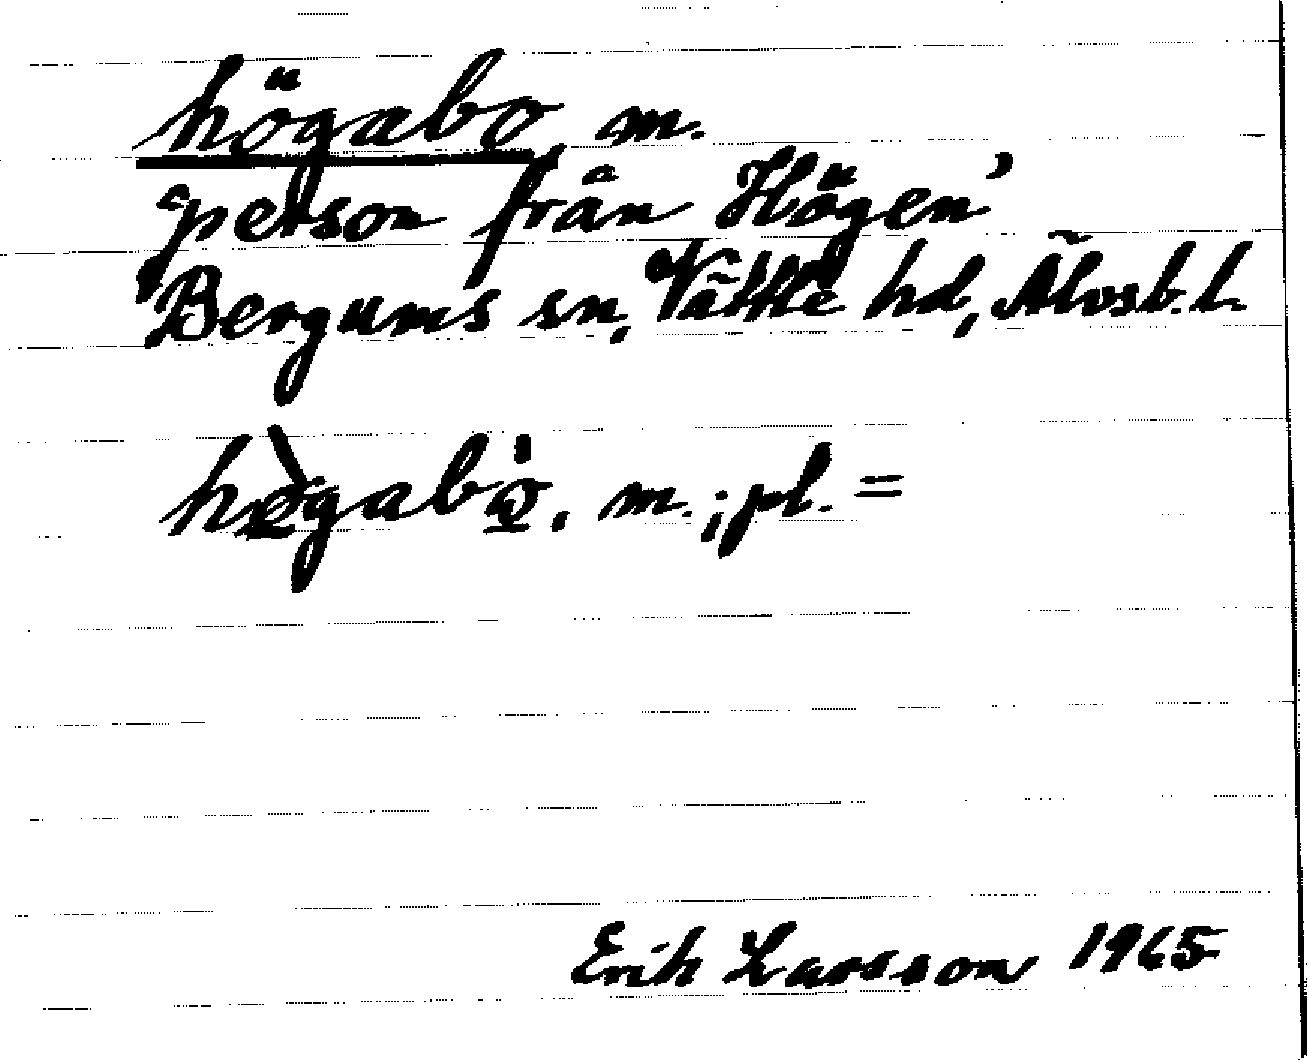 högabo m.
'person från Högen'
Bergums sn, Vättle hd, Älvsb. l.
hø̀gabò. m.; pl. =
Erik Larsson 1965